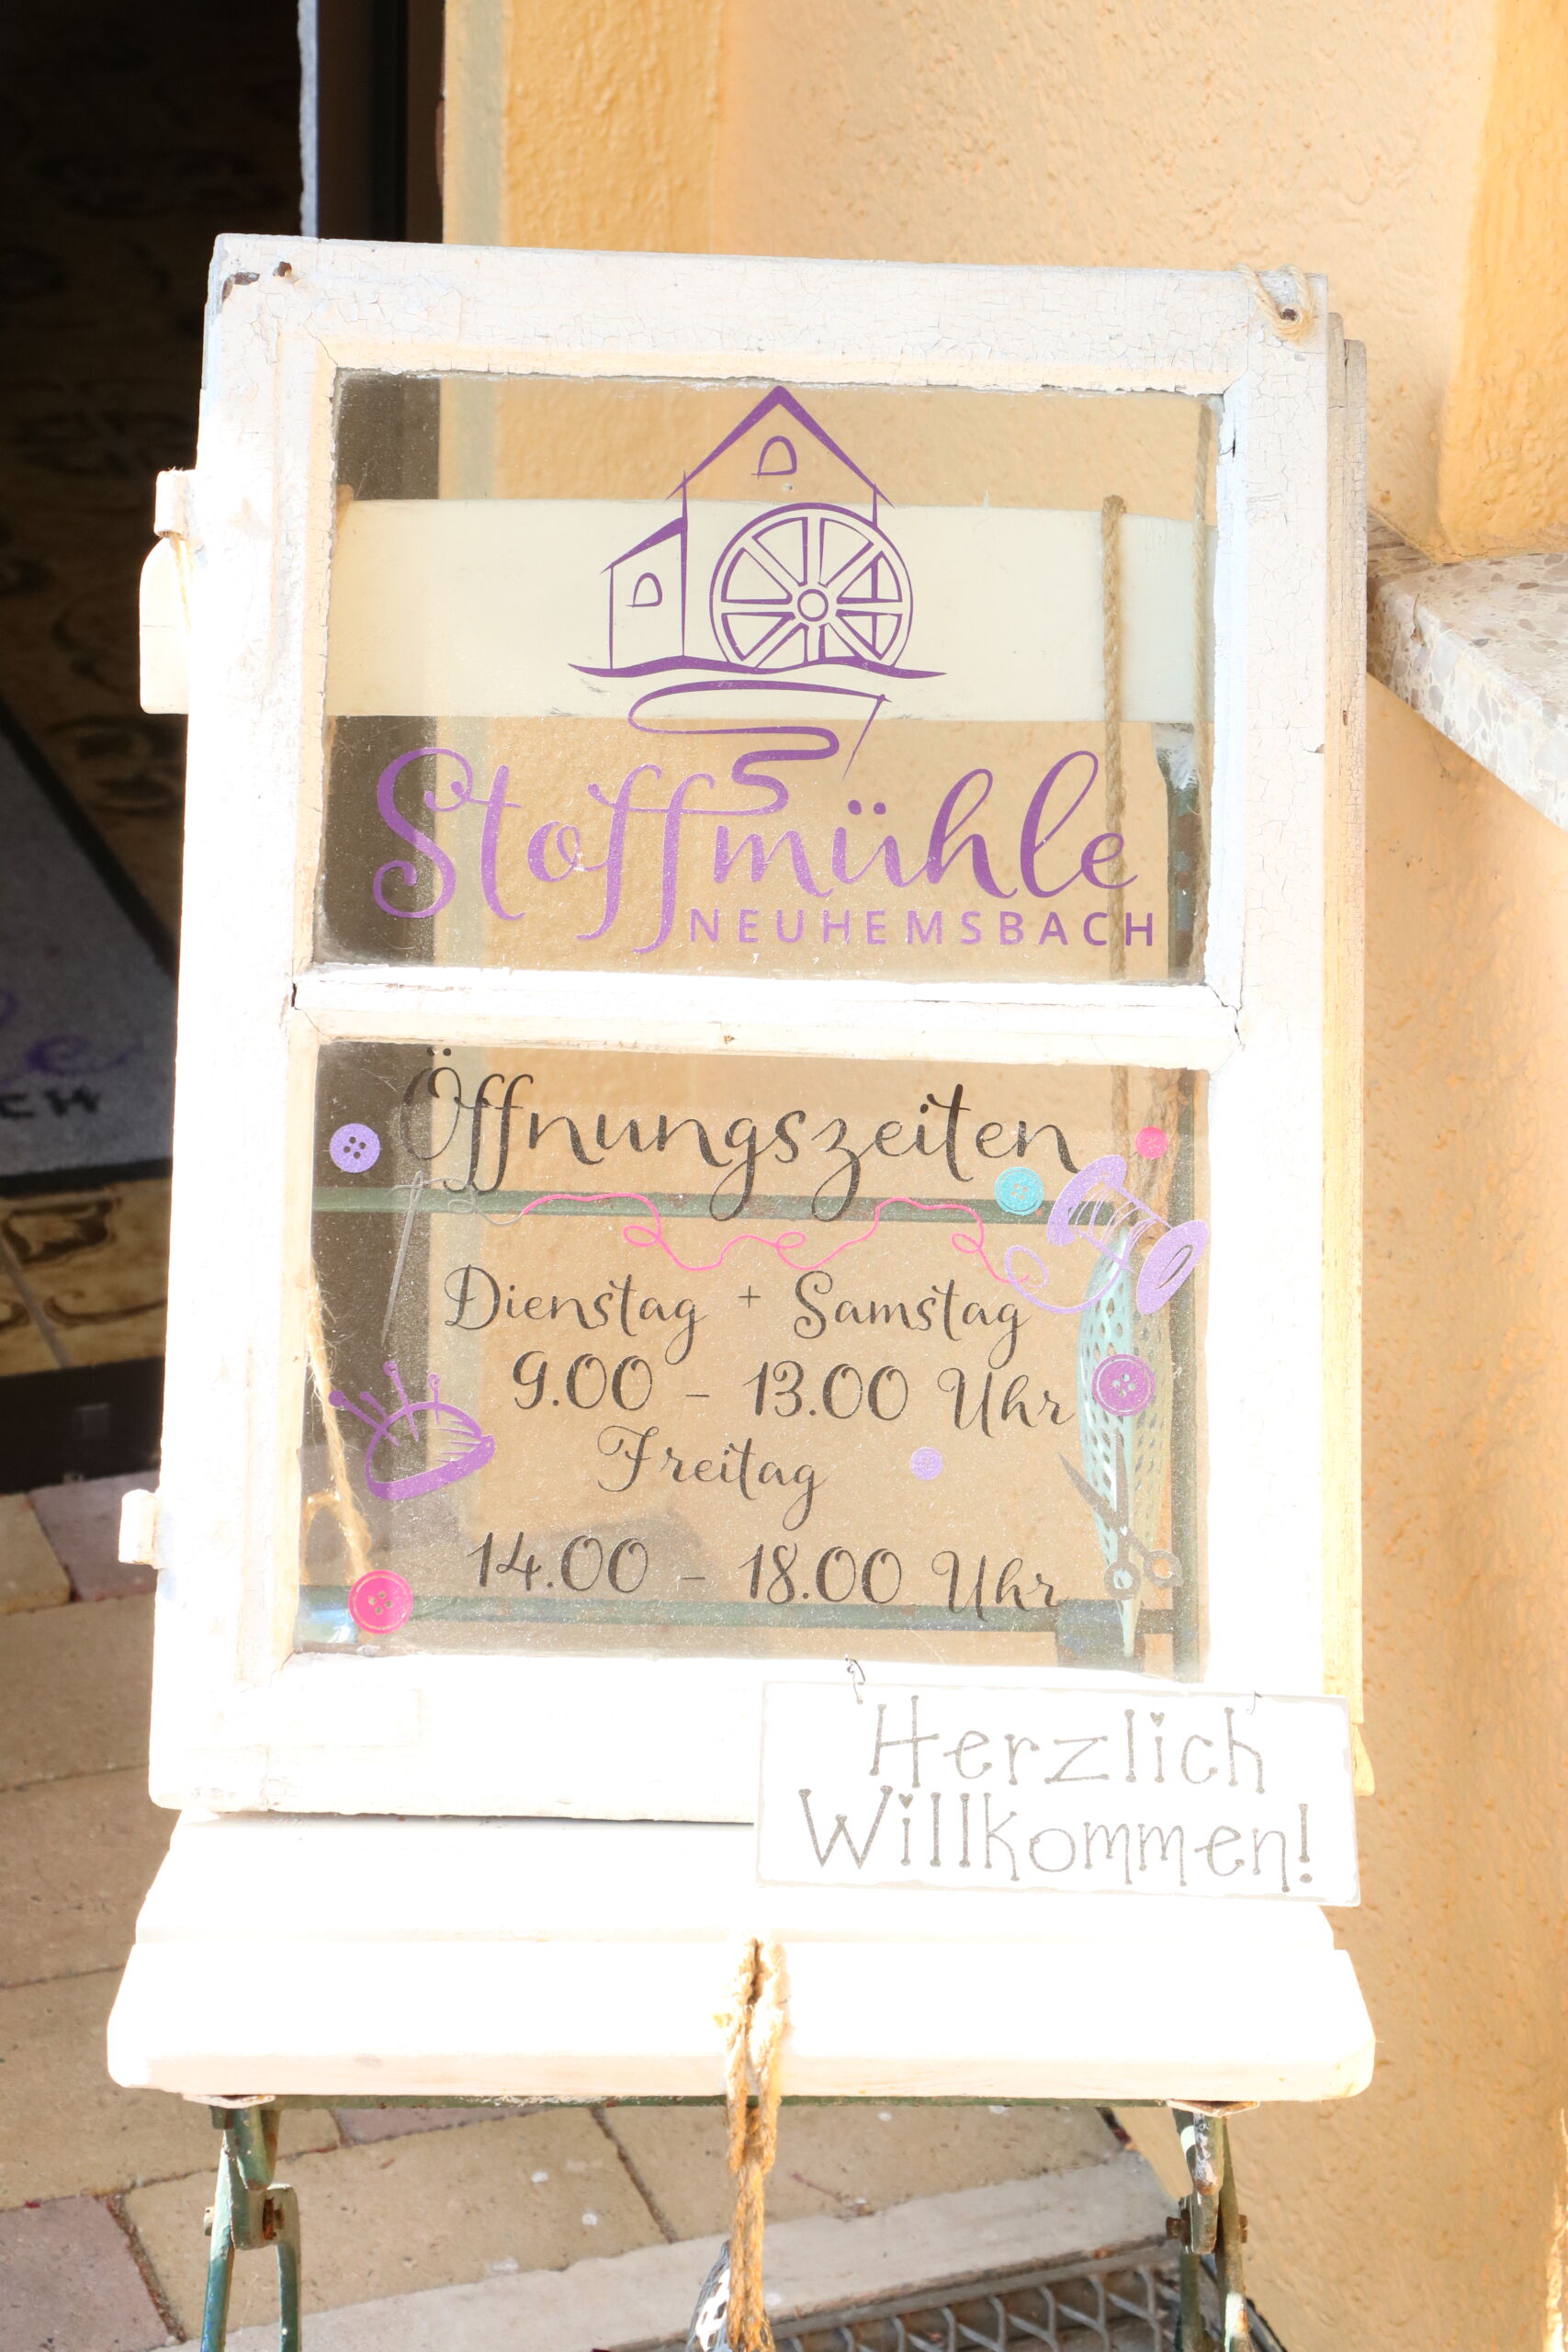 Stoffmühle
NEUHEMSBACH
Öffnungszeiten
Dienstag + Samstag
9.00 - 13.00 Uhr
Freitag
14.00 - 18.00 Uhr
Herzlich
Willkommen!